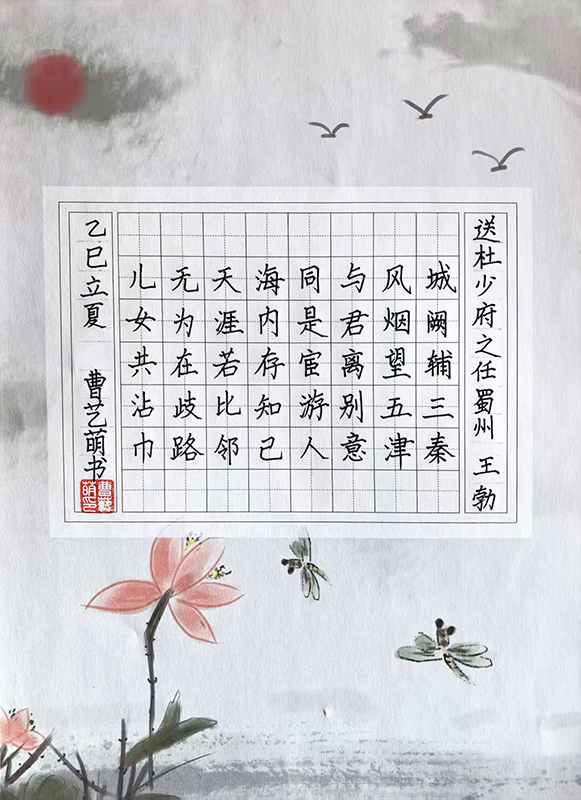 送杜少府之任蜀州 王勃
城阙辅三秦
风烟望五津
与君离别意
同是宦游人
海内存知己
天涯若比邻
无为在歧路
儿女共沾巾
乙巳立夏 曹艺萌书
曹艺萌印